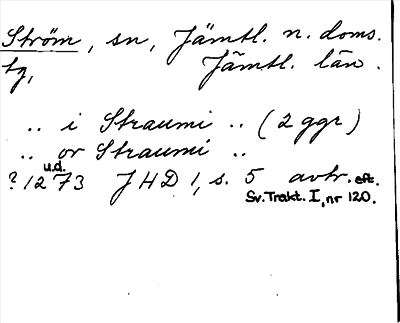 Ström, sn, Jämtl. n. doms.
tg, Jämtl. län.
.. i Straumi .. (2 ggr)
.. or Straumi ..
u.d.
? 1273 JHD 1, s. 5 avtr. eft.
Sv. Trakt. I, nr 120.